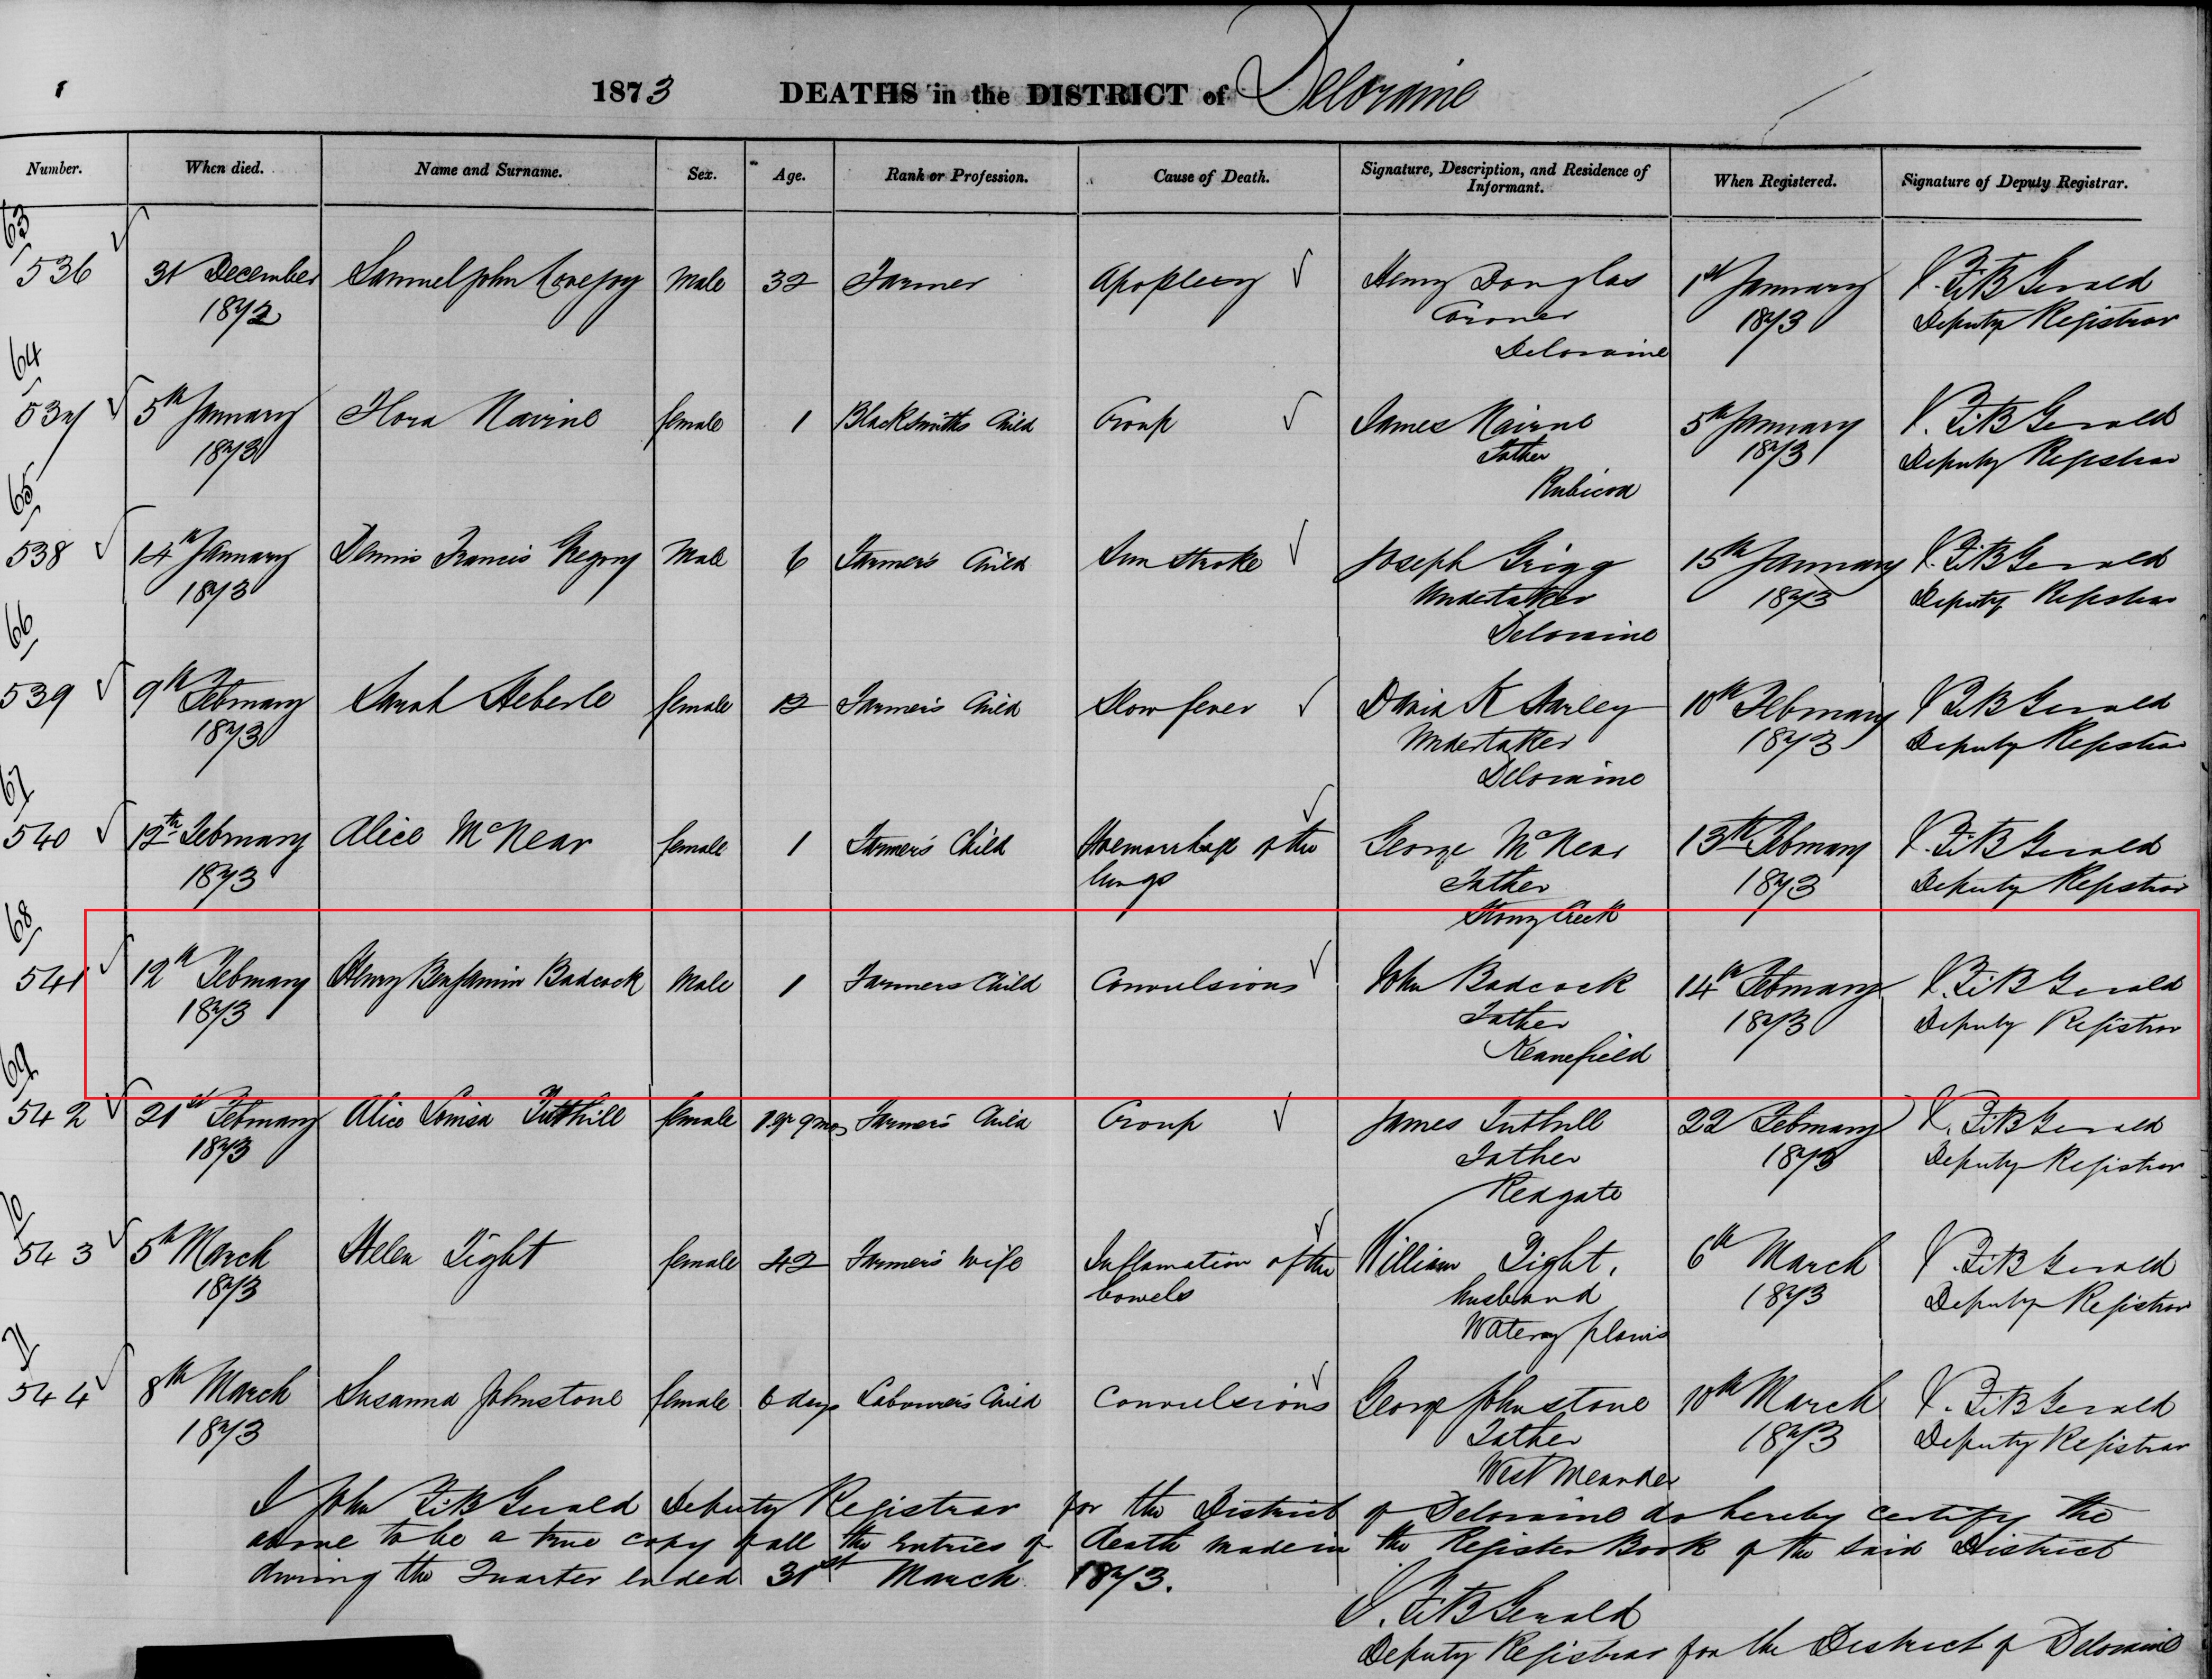 1873 DEATHS in the DISTRICT of Deloraine
Number. When died. Name and Surname. Sex. Age. Rank or Profession. Cause of Death. Signature, Description, and Residence of Informant. When Registered. Signature of Deputy Registrar.
63
536 31 December Samuel John Lovejoy Male 32 Farmer Apoplexy Henry Douglas 1st January J. FitzGerald
1872 Coroner 1873 Deputy Registrar
Deloraine
64
537 5th January Flora Navine female 1 Blacksmiths Child Croup James Nairne 5th January J. FitzGerald
1873 Father 1873 Deputy Registrar
Rubicon
65
538 14th January Dennis Francis Gregory Male 6 Farmer's Child Sun stroke Joseph Grigg 15th January J. FitzGerald
1873 Undertaker 1873 Deputy Registrar
Deloraine
66
539 9th February Sarah Heberle female 12 Farmer's Child Slow fever David K Harley 10th February J FitzGerald
1873 Undertaker 1873 Deputy Registrar
Deloraine
67
540 12th February Alice McNear female 1 Farmer's Child Haemorrhage of the George McNear 13th February J. FitzGerald
1873 lungs Father 1873 Deputy Registrar
Stony Creek
68
541 12th February Henry Benjamin Badcock Male 1 Farmers Child Convulsions John Badcock 14th February J. FitzGerald
1873 Father 1873 Deputy Registrar
Keanefield
69
542 21st February Alice Louisa Tutthill female 1 yr 9 mos Farmer's Child Croup James Tuthill 22 February J. FitzGerald
1873 Father 1873 Deputy Registrar
Redgate
70
543 5th March Helen Tight female 42 Farmer's Wife Inflamation of the William Tight, 6th March J. FitzGerald
1873 bowels husband 1873 Deputy Registrar
Watery plains
71
544 8th March Susanna Johnstone female 6 days Labourer's Child Convulsions George Johnstone 10th March J. FitzGerald
1873 Father 1873 Deputy Registrar
West Meander
I John FitzGerald Deputy Registrar for the District of Deloraine do hereby certify the
above to be a true copy of all the Entries of death made in the Register Book of the said District
during the Quarter ended 31st March 1873.
J. FitzGerald
Deputy Registrar for the District of Deloraine